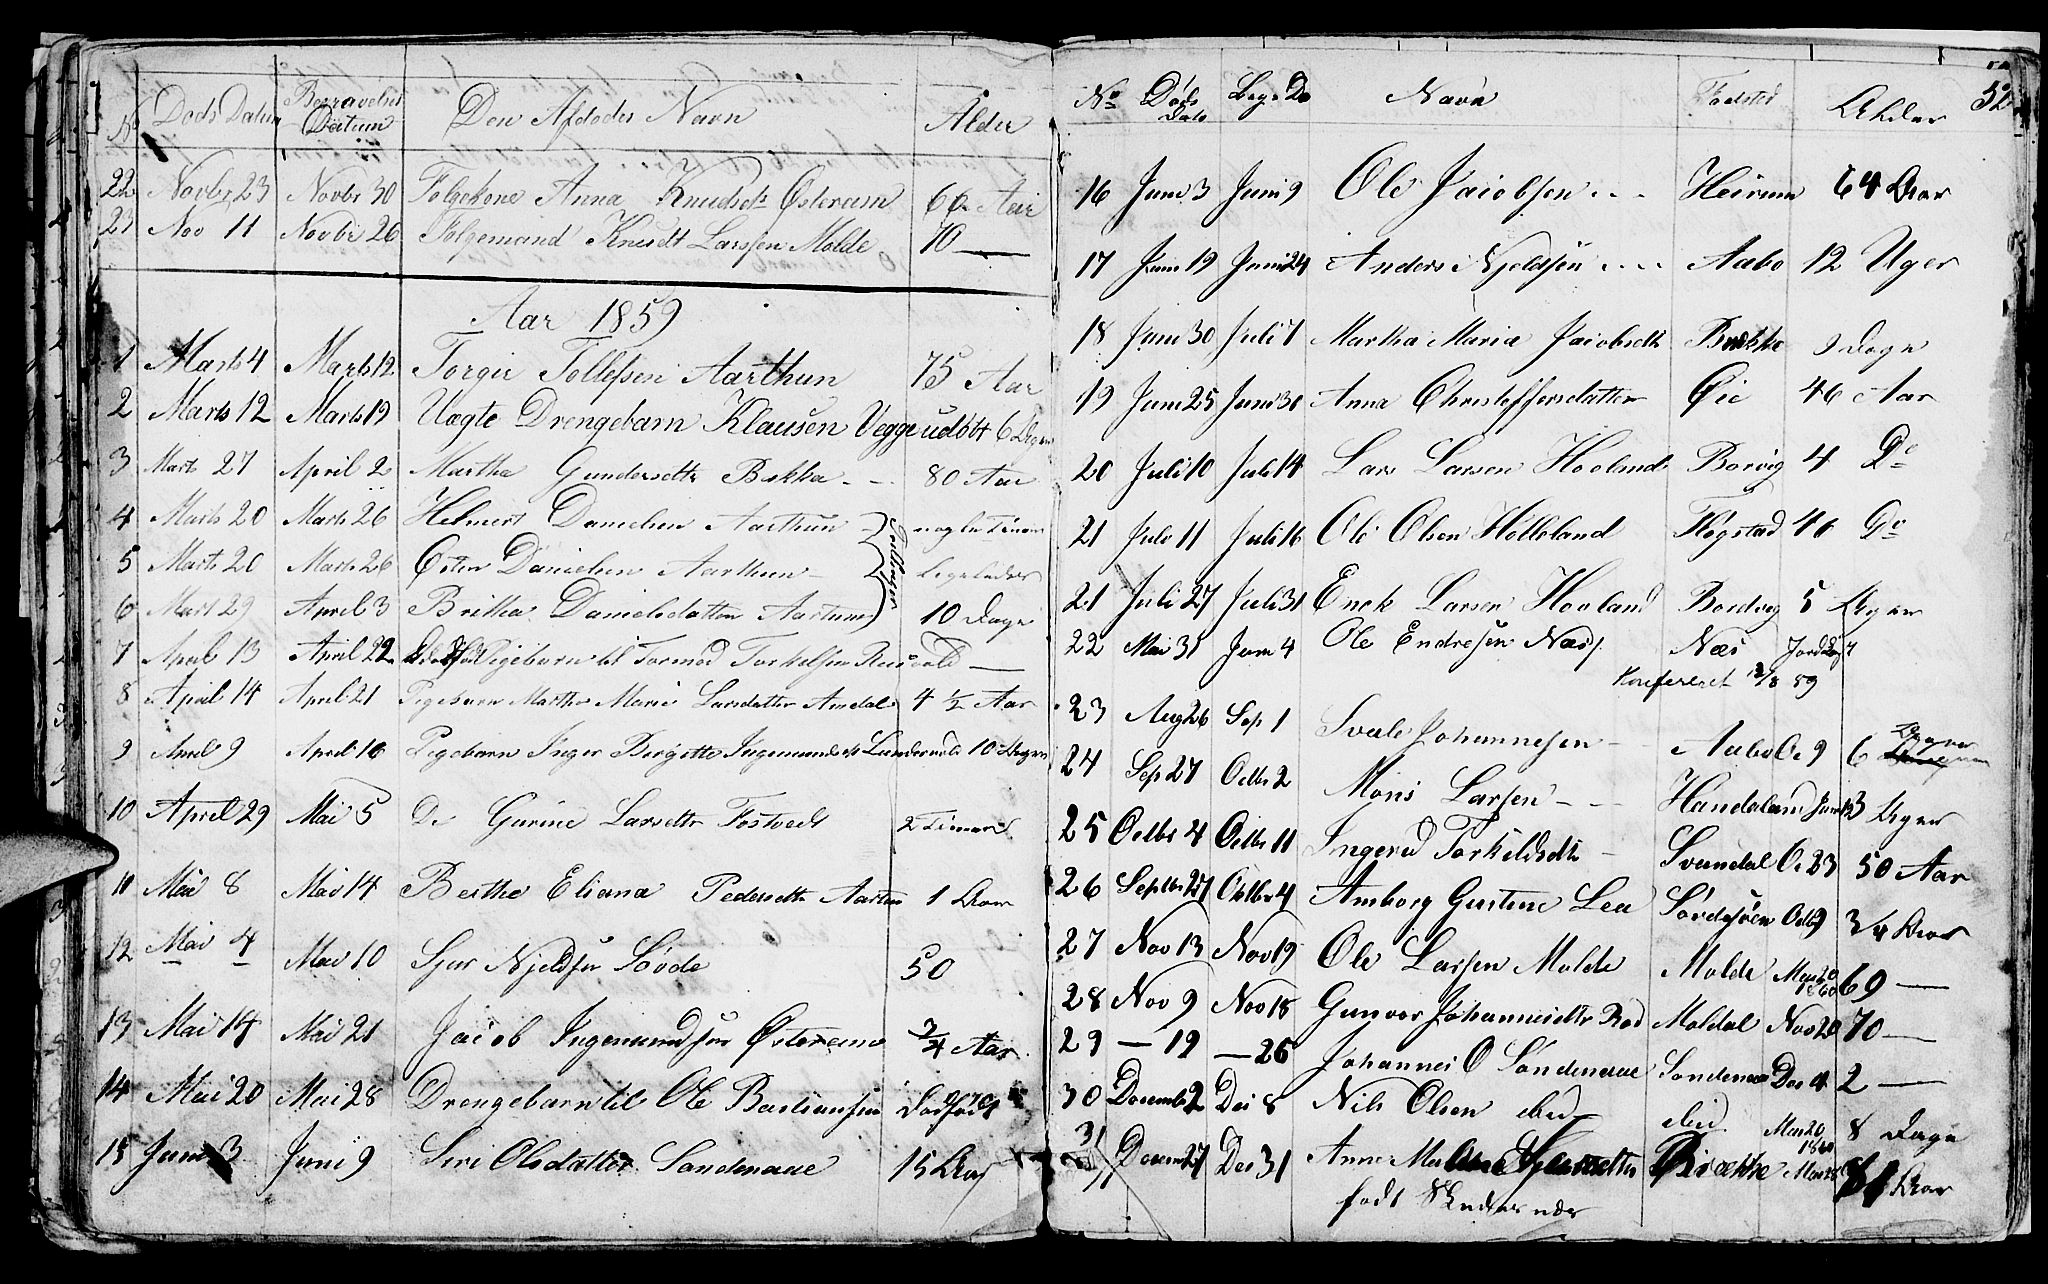 No Døds Datum Begravelses Datum Den Afdødes Navn Alder
22 Novbr 23 Novbr 30 Følgekone Anna Knudsdt Østerem 60 Aar
23 Nov 11 Novbr 26 Følgemand Knudt Larssen Molde 70 —
Aar 1859
1 Marts 4 Marts 12 Torgir Tollefsen Aarthun 75 Aar
2 Marts 12 Marts 19 Uægte Drengebarn Klausen Vegge udøbt 6 Uger
3 Marts 27 April 2 Martha Gundersdtr Bakka - - 80 Aar
4 Marts 20 Marts 26 Helmert Danielsen Aarthun nogle Timer
5 Marts 20 Marts 26 Østen Danielsen Aarthun - Ligeledes
6 Mart 29 April 3 Britha Danielsdatter Aartun 10 Dage
Trillinger
7 April 13 April 22 Pigebarn til Tormod Torkelsen —
8 April 14 April 21 Pigebarn Martha Marie Larsdatter Amdal 4 ½ Aar
9 April 9 April 16 Pigebarn Inger Birgitte Ingemundsdt 10 Uger
10 April 29 Mai 5 Do Gurine Larsdtr Fostvedt 2 Timer
11 Mai 8 Mai 14 Berthe Eliana Pedersdtr Aartun 1 Aar
12 Mai 4 Mai 10 Sjur Njeldsen Løvde 50
13 Mai 14 Mai 21 Jacob Ingemundsen Østereme ¾ Aar
14 Mai 20 Mai 28 Drengebarn til Ole Bastiansen Dødfødt
15 Juni 3 Juni 9 Siri Olsdatter Søndenaae 15 Aar
No Døds Dato Begr Do Navn Fødsted Alder 52
16 Juni 3 Juni 9 Ole Jacobsen - - - 64 Aar
17 Juni 19 Juni 24 Anders Njeldsen - - - Aabo 12 Uger
18 Juni 30 Juli 7 Martha Maria Jacobsdtr Bakke 9 Dage
19 Juni 25 Juni 30 Anna Christoffersdatter Øie 46 Aar
20 Juli 10 Juli 14 Lars Larsen Hoeland Borvig 4 Do
21 Juli 11 Juli 16 Ole Olsen Hølleland Høgstad 46 Do
21 Juli 27 Juli 31 Enok Larsen Hovland Bordvig 5 Uger
22 Mai 31 Juni 4 Ole Endresen Næss Næs
Konfereret
23 Aug 26 Sep 1 Svale Johannesen - Aabo Oc 9 6 Uger
24 Sep 27 Octbr 2 Mons Larsen - - Handeland 3 Uger
25 Octbr 4 Octbr 11 Ingerid Torkildsdtr - Svandal Oc 23 50 Aar
26 Septbr 27 Oktbr 4 Amborg Gustine Lea Octb 9 3/4 Aar
27 Nov 13 Nov 19 Ole Larsen Molde Molde Mars 20 1860 69 —
28 Nov 9 Nov 18 Gunvor Johannesdtr Rød Moldal Nov 20 70 —
29 — 19 — 26 Johannes O Søndenaae Søndenaae Dec 4 2 —
30 Decemb 2 Dec 8 Nils Olsen ibid ibid Mars 20 1860 8 Dage
31 Decem 27 Dec 31 Anne Birække 81 Aar
født